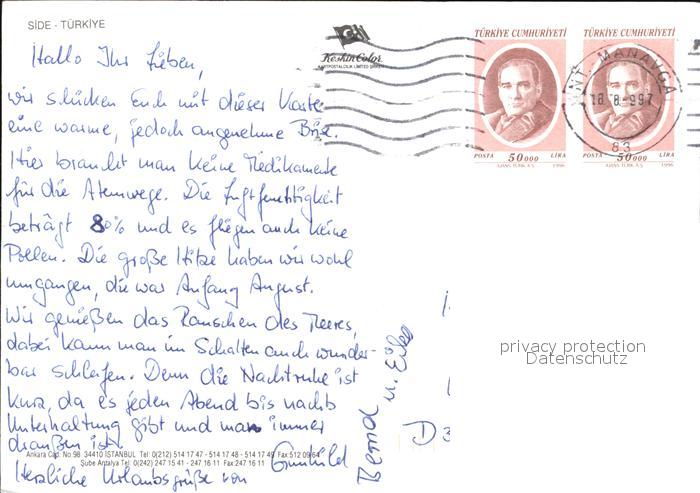 SİDE - TÜRKİYE
Keskin Color
KARTPOSTALCILIK LİMİTED ŞİRKETİ
TÜRKİYE CUMHURİYETİ
TÜRKİYE CUMHURİYETİ
MANAVGAT
18.8.997
83
POSTA 50 000 LİRA
POSTA 50 000 LİRA
AJANS TÜRK A.Ş. 1996
AJANS TÜRK A.Ş. 1996
Hallo Ihr Lieben,
wir schicken Euch mit dieser Karte
eine warme, jedoch angenehme Brise.
Hier braucht man keine Medikamente
für die Atemwege. Die Luftfeuchtigkeit
beträgt 80% und es fliegen auch keine
Pollen. Die große Hitze haben wir wohl
umgangen, die war Anfang August.
Wir genießen das Rauschen des Meeres,
dabei kann man im Schatten auch wunder-
bar schlafen. Denn die Nachtruhe ist
kurz, da es jeden Abend bis nachts
Unterhaltung gibt und man immer
draußen ist.
Ankara Cad. No:98 34410 İSTANBUL Tel: 0(212) 514 17 47 - 514 17 48 - 514 17 49 Fax:512 09 64
Şube Antalya Tel: 0(242) 247 15 41 - 247 16 11 Fax:247 16 11
Herzliche Urlaubsgrüße von Gunhild
Bernd u. Eike
D
privacy protection
Datenschutz